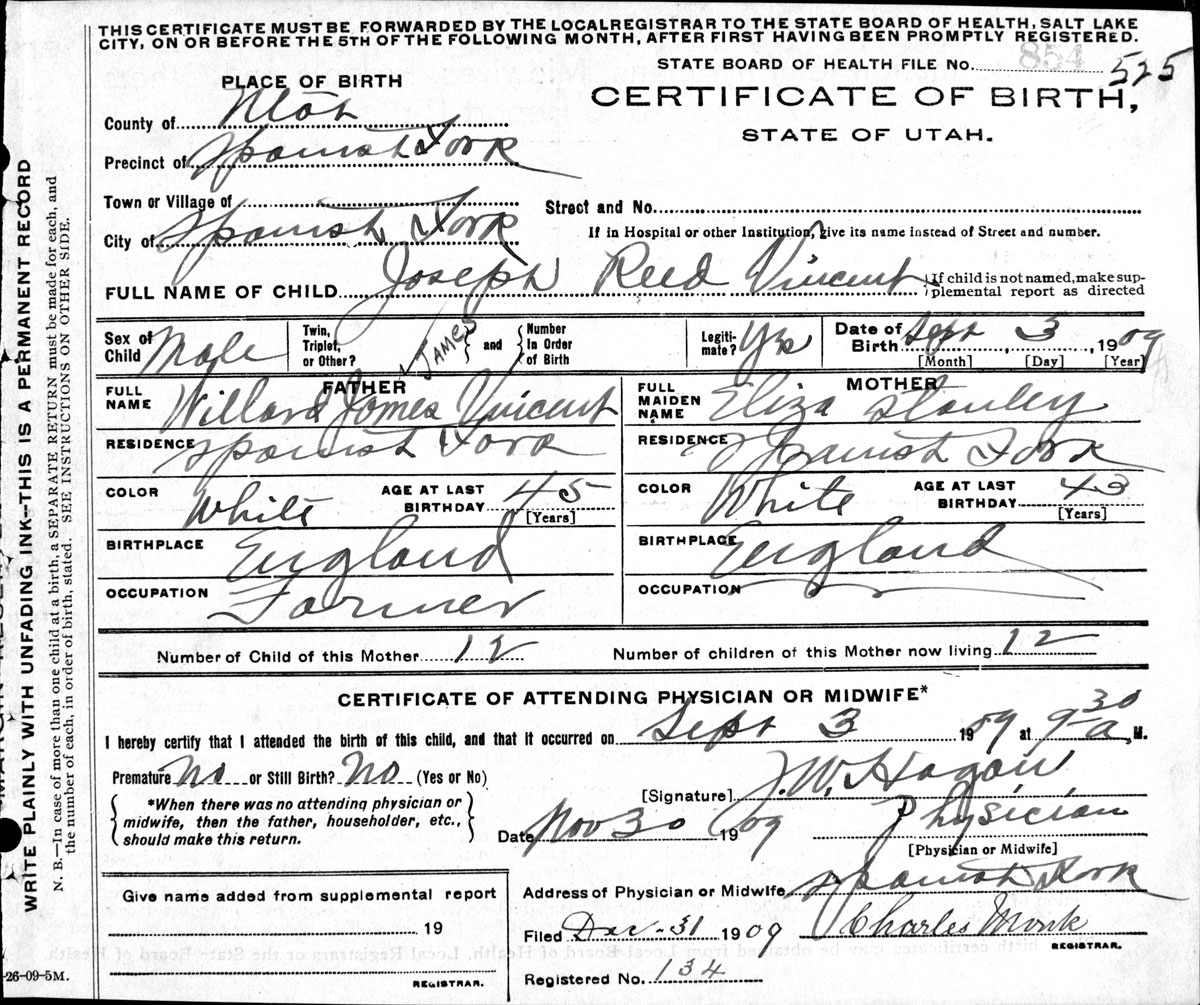 THIS CERTIFICATE MUST BE FORWARDED BY THE LOCAL REGISTRAR TO THE STATE BOARD OF HEALTH, SALT LAKE
CITY, ON OR BEFORE THE 5TH OF THE FOLLOWING MONTH, AFTER FIRST HAVING BEEN PROMPTLY REGISTERED.
STATE BOARD OF HEALTH FILE No. 854 525
PLACE OF BIRTH
CERTIFICATE OF BIRTH,
STATE OF UTAH.
County of Utah
Precinct of Spanish Fork
Town or Village of
Street and No.
City of Spanish Fork
If in Hospital or other Institution, give its name instead of Street and number.
FULL NAME OF CHILD Joseph Reed Vincent
If child is not named, make sup-
plemental report as directed
Sex of Child Male
Twin, Triplet, or Other?
and
Number In Order of Birth
Legiti-mate? Yes
Date of Birth Sept 3, 1909
[Month] [Day] [Year]
JAMES
FATHER
FULL NAME Willard James Vincent
RESIDENCE Spanish Fork
COLOR White AGE AT LAST BIRTHDAY 45
[Years]
BIRTHPLACE England
OCCUPATION Farmer
MOTHER
FULL MAIDEN NAME Eliza Stanley
RESIDENCE Spanish Fork
COLOR White AGE AT LAST BIRTHDAY 43
[Years]
BIRTHPLACE England
OCCUPATION
Number of Child of this Mother 12 Number of children of this Mother now living 12
CERTIFICATE OF ATTENDING PHYSICIAN OR MIDWIFE*
I hereby certify that I attended the birth of this child, and that it occurred on Sept 3 1909 at 9 30 a, M.
Premature No or Still Birth? No (Yes or No)
[Signature] J. W. Hagan
*When there was no attending physician or
midwife, then the father, householder, etc.,
should make this return.
Date Nov 30 1909 Physician
[Physician or Midwife]
Give name added from supplemental report
19
REGISTRAR.
Address of Physician or Midwife Spanish Fork
Filed Dec-31 1909 Charles Monk
REGISTRAR.
Registered No. 134
-26-09-5M.
WRITE PLAINLY WITH UNFADING INK--THIS IS A PERMANENT RECORD
N. B.—In case of more than one child at a birth, a SEPARATE RETURN must be made for each, and
the number of each, in order of birth, stated. SEE INSTRUCTIONS ON OTHER SIDE.